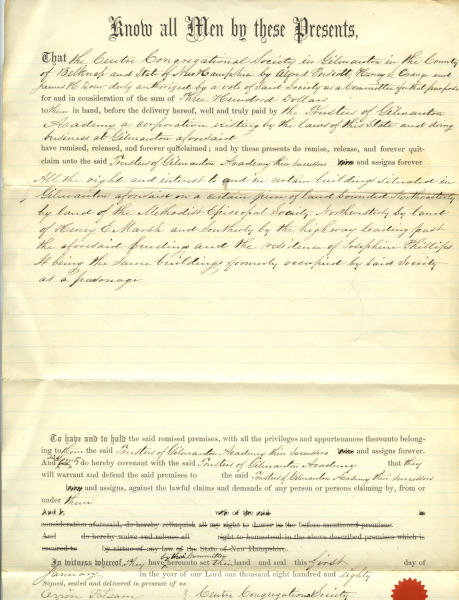 Know all Men by these Presents,
That the Centre Congregational Society in Gilmanton in the County
of Belknap and State of New Hampshire by Alfred Prescott, Henry S. Orange and
James H. duly authorized by a vote of said Society as a Committee for that purpose
for and in consideration of the sum of Three Hundred Dollars
to them in hand, before the delivery hereof, well and truly paid by the Trustees of Gilmanton
Academy a corporation existing by the laws of this State and doing
business at Gilmanton aforesaid
have remised, released, and forever quitclaimed; and by these presents do remise, release, and forever quit-
claim unto the said Trustees of Gilmanton Academy their successors heirs and assigns forever
All the right and interest to and in certain building situated in
Gilmanton aforesaid on a certain piece of land bounded Northeasterly
by land of the Methodist Episcopal Society Northwesterly by land
of Henry C. Marsh and Southerly by the highway leading past
the aforesaid building and the residence of Josephine Phillips
It being the same buildings formerly occupied by said Society
as a parsonage
To have and to hold the said remised premises, with all the privileges and appurtenances thereunto belong-
ing to them the said Trustees of Gilmanton Academy their successors heirs and assigns forever.
And do hereby covenant with the said Trustees of Gilmanton Academy that they
will warrant and defend the said premises to the said Trustees of Gilmanton Academy their successors
heirs and assigns, against the lawful claims and demands of any person or persons claiming by, from or
under them
And I, wife of the said
consideration aforesaid, do hereby relinquish all my right to dower in the before mentioned premises.
And do hereby waive and release all right to homestead in the above described premises which is
secured to by virtue of any law of the State of New Hampshire.
by their Committee
In witness whereof, they have hereunto set their hand and seal this first day of
January in the year of our Lord one thousand eight hundred and eighty
Signed, sealed and delivered in presence of us:
Orrin Folsom Centre Congregational Society